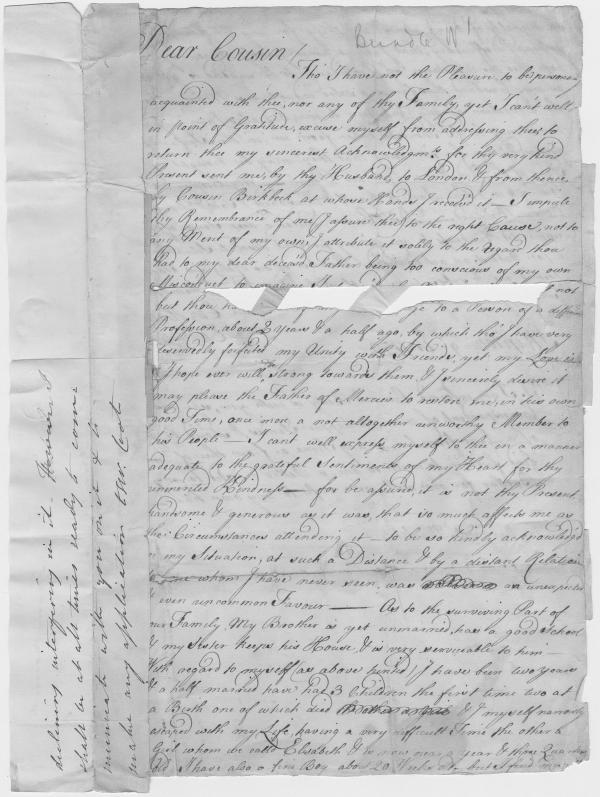 Bundle N1
Dear Cousin /
Tho' I have not the Pleasure to be person
acquainted with thee, nor any of thy Family, yet I can't well
in point of Gratitude, excuse myself from addressing thee to
return thee my sincerest Acknowledgmts. for thy very kind
Present sent me, by thy Husband, to London & from thence
by Cousin Birkbeck at whose Hands I received it — I impute
thy Remembrance of me I assure thee to the right Cause, not to
any Merit of my own, I attribute it solely to the regard thou
had to my dear deceas'd Father being too conscious of my own
Misconduct to imagine
not
but thou ha
ge to a Person of a differ
Profession, about 2 Years & a half ago, by which tho' I have very
deservedly forfeited my Unity with Friends, yet my Love is
I hope ever will strong towards them, & I sincerely desire it
may please the Father of Mercies to restore me, in his own
good Time, once more a not altogether unworthy Member to
his People — I can't well express myself to thee in a manner
adequate to the grateful Sentiments of my Heart for thy
unmerited Kindness — for be assured, it is not thy Present,
handsome & generous as it was, that so much affects me as
the Circumstances attending it — to be so kindly acknowledg'd
in my Situation, at such a Distance & by a distant Relation
whom I have never seen, was an unexpected
& even uncommon Favour — As to the surviving Part of
our Family, My Brother is yet unmarried, has a good School
& my Sister keeps his House, & is very serviceable to him —
With regard to myself (as above hinted) I have been two Years
& a half married have had 3 Children the first time two at
a Birth one of which died & I myself narrowly
escaped with my Life, having a very difficult Time the other a
Girl whom we call Elisabeth & is now near a year & three Quarters
old I have also a fine Boy about 20 Weeks old but I find my
declining interfering in it. However I
shall be at all times ready to com-
municate with you on it & to
make any application &c. &c. Cost